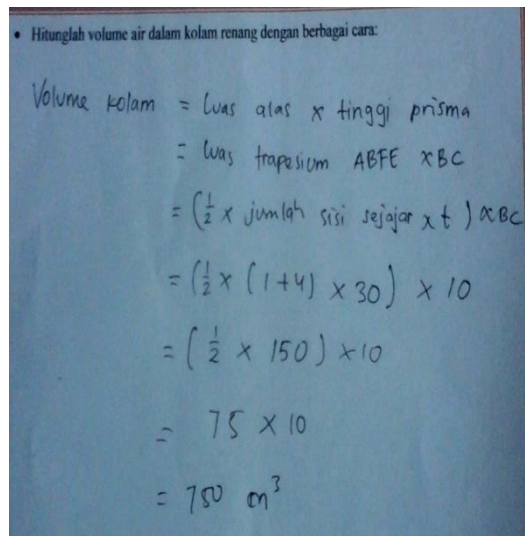 • Hitunglah volume air dalam kolam renang dengan berbagai cara:
Volume kolam = luas alas x tinggi prisma
= luas trapesium ABFE x BC
= (1/2 x jumlah sisi sejajar x t) x BC
= (1/2 x (1+4) x 30) x 10
= (1/2 x 150) x 10
= 75 x 10
= 750 m³